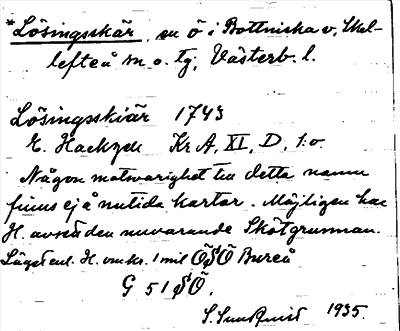 *Lösingsskär, en ö i Bottniska v, Skel-
lefteå sn o. tg, Västerb. l.
Lösingsskiär 1743
E. Hackzell Kr A, XI, D, 1:o
Någon motsvarighet till detta namn
finns ej å nutida kartor. Möjligen har
H. avsett den nuvarande Skötgrunnan.
Läget enl. H. omkr. 1 mil ÖSÖ Bureå
G 51 SÖ.
S. Sundqvist 1935.